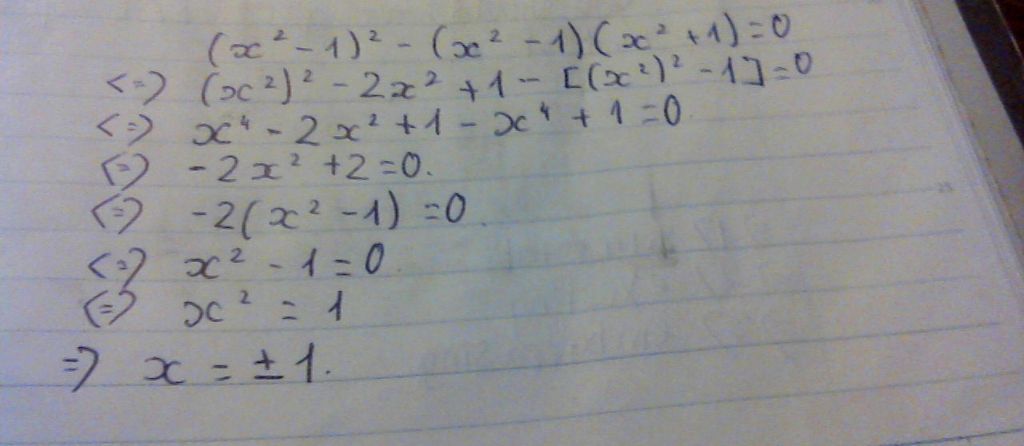 (x² - 1)² - (x² - 1)(x² + 1) = 0
<=> (x²)² - 2x² + 1 - [(x²)² - 1] = 0
<=> x⁴ - 2x² + 1 - x⁴ + 1 = 0
<=> -2x² + 2 = 0.
<=> -2(x² - 1) = 0
<=> x² - 1 = 0
<=> x² = 1
=> x = ± 1.